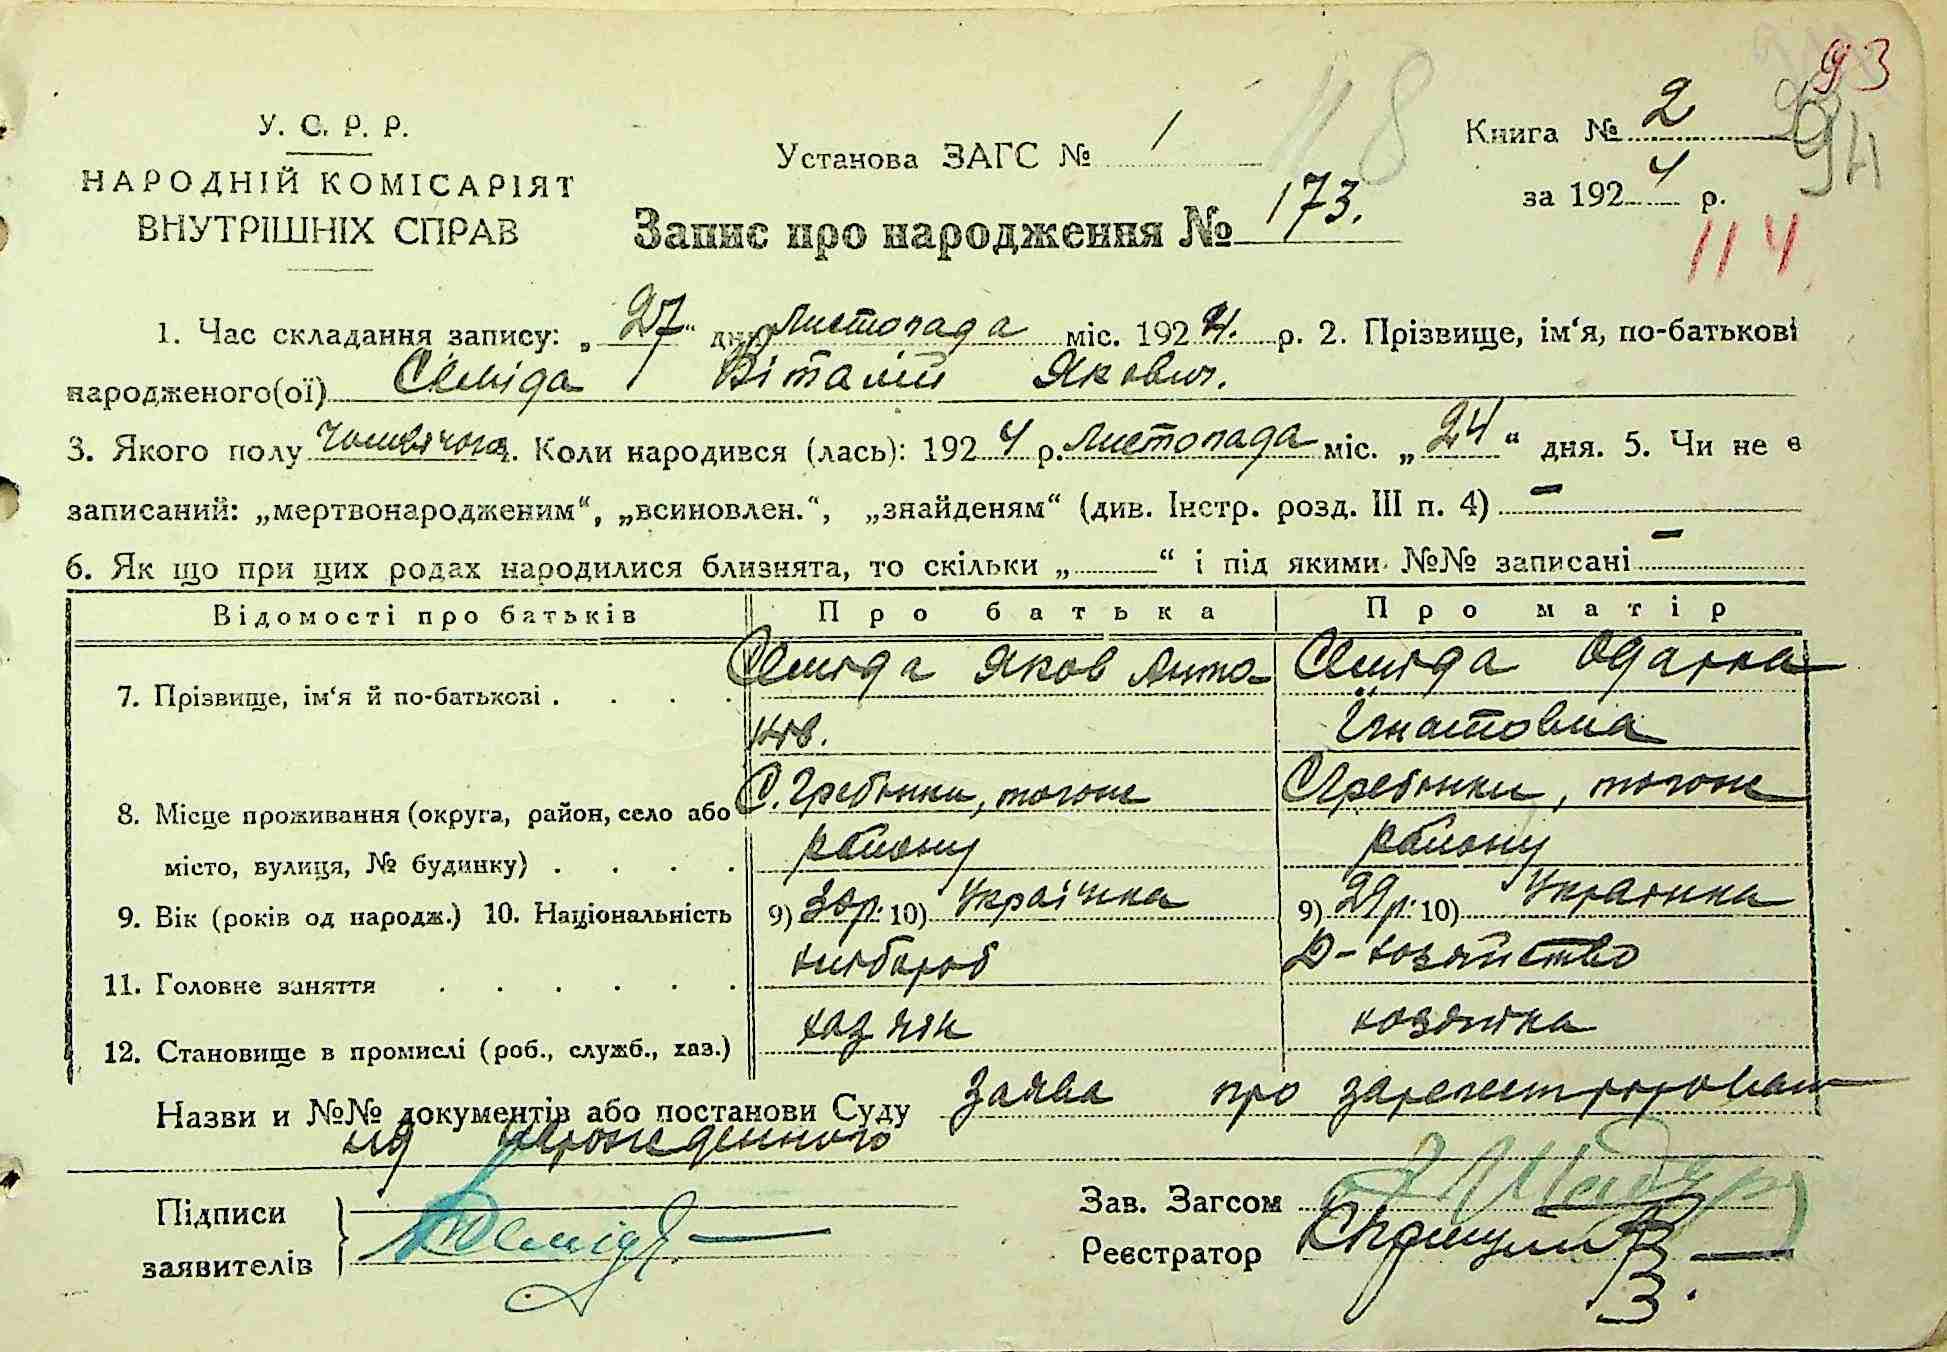 93
94
118
У. С. Р. Р.
НАРОДНІЙ КОМІСАРІЯТ
ВНУТРІШНІХ СПРАВ
Установа ЗАГС № 1
Книга № 2
за 1924 р.
114
Запис про народження № 173.
1. Час складання запису: „27“ дня Листопада міс. 1924. р. 2. Прізвище, ім‘я, по-батькові
народженого(ої) Семіда Віталій Якович.
3. Якого полу чоловічого 4. Коли народився (лась): 1924 р. Листопада міс. „24“ дня. 5. Чи не є
записаний: „мертвонародженим“, „всиновлен.“, „знайденям“ (див. Інстр. розд. III п. 4) –
6. Як що при цих родах народилися близнята, то скільки „ “ і під якими №№ записані –
Відомості про батьків Про батька Про матір
7. Прізвище, ім‘я й по-батькові . . . . Семіда Яков Анто Семіда Одарка
нів. Ігнатовна
8. Місце проживання (округа, район, село або С. Гребінки, тогож С Гребінки, тогож
місто, вулиця, № будинку) . . . . району району
9. Вік (років од народж.) 10. Національність 9) 30р. 10) Українка 9) 29р. 10) Українка
11. Головне заняття . . . . . . хлібороб Д-хозяйство
12. Становище в промислі (роб., служб., хаз.) хазяїн хозяйка
Назви и №№ документів або постанови Суду Заява про зарегистрирован
ня
Підписи
заявителів
Зав. Загсом
Реєстратор